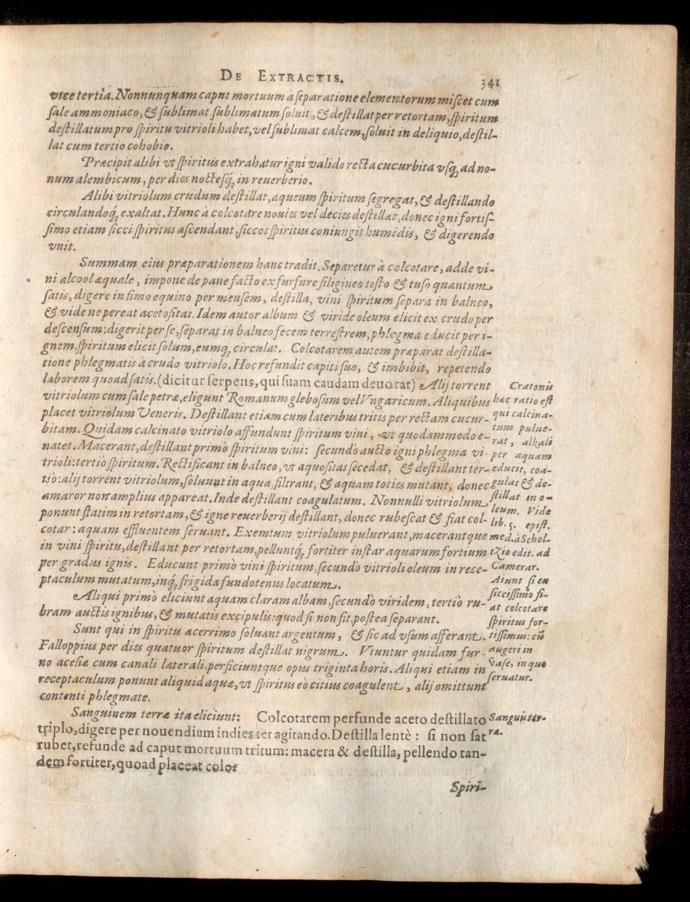 DE EXTRACTIS. 341
vice tertia. Nonnunquam caput mortuum à ſeparatione elementorum miſcet cum
ſale ammoniaco, & ſublimat ſublimatum ſoluit, & deſtillat per retortam, ſpiritum
deſtillatum pro ſpiritu vitrioli habet, vel ſublimat calcem, ſoluit in deliquio, deſtil-
lat cum tertio cohobio.
Præcipit alibi vt ſpiritus extrahatur igni valido recta cucurbita vſq; ad no-
num alembicum, per dies noctesq́; in reuerberio.
Alibi vitriolum crudum deſtillat, aqueum ſpiritum ſegregat, & deſtillando
circulandoq́; exaltat. Hunc à colcotare nouies vel decies deſtillat, donec igni fortiſ-
ſimo etiam ſicci ſpiritus aſcendant, ſiccos ſpiritus coniungit humidis, & digerendo
vnit.
Summam eius præparationem hanc tradit. Separetur à colcotare, adde vi-
ni alcool æquale, impone de pane facto ex furfure ſiligineo toſto & tuſo quantum
ſatis, digere in fimo equino per menſem, deſtilla, vini ſpiritum ſepara in balneo,
& vide ne pereat acetoſitas. Idem autor album & viride oleum elicit ex crudo per
deſcenſum: digerit per ſe, ſeparat in balneo fecem terreſtrem, phlegma educit per i-
gnem, ſpiritum elicit ſolum, eumq́; circulat. Colcotarem autem præparat deſtilla-
tione phlegmatis à crudo vitriolo. Hoc refundit capiti ſuo, & imbibit, repetendo
laborem quoad ſatis. (dicitur ſerpens, qui ſuam caudam deuorat) Alij torrent
vitriolum cum ſale petræ, eligunt Romanum gleboſum vel Vngaricum. Aliquibus
placet vitriolum Veneris. Deſtillant etiam cum lateribus tritis per rectam cucur-
bitam. Quidam calcinato vitriolo affundunt ſpiritum vini, vt quodammodo e-
natet. Macerant, deſtillant primò ſpiritum vini: ſecundò aucto igni phlegma vi-
trioli: tertiò ſpiritum. Rectificant in balneo, vt aquoſitas ſecedat, & deſtillant ter-
tiò: alij torrent vitriolum, ſoluunt in aqua, filtrant, & aquam toties mutant, donec
amaror non amplius appareat. Inde deſtillant coagulatum. Nonnulli vitriolum
ponunt ſtatim in retortam, & igne reuerberij deſtillant, donec rubeſcat & fiat col-
cotar: aquam effluentem ſeruant. Exemtum vitriolum puluerant, macerantque
in vini ſpiritu, deſtillant per retortam, pelluntq́; fortiter inſtar aquarum fortium
per gradus ignis. Educunt primò vini ſpiritum, ſecundò vitrioli oleum in rece-
ptaculum mutatum, inq́; frigida fundotenus locatum.
Aliqui primò eliciunt aquam claram albam, ſecundò viridem, tertiò ru-
bram auctis ignibus, & mutatis excipulis: quod ſi non ſit, poſtea ſeparant.
Sunt qui in ſpiritu acerrimo ſoluant argentum, & ſic ad vſum afferant.
Falloppius per dies quatuor ſpiritum deſtillat nigrum. Vtuntur quidam fur-
no aceſiæ cum canali laterali, perficiuntque opus triginta horis. Aliqui etiam in
receptaculum ponunt aliquid aquæ, vt ſpiritus eò citius coagulent, alij omittunt
contenti phlegmate.
Sanguinem terræ ita eliciunt: Colcotarem perfunde aceto deſtillato
triplo, digere per nouendium indies ter agitando. Deſtilla lentè: ſi non ſat
rubet, refunde ad caput mortuum tritum: macera & deſtilla, pellendo tan-
dem fortiter, quoad placeat color
Spiri-
Cratonis
hæc ratio eſt
qui calcina-
tum pulue-
rat, alkali
per aquam
educit, coa-
gulat & de-
ſtillat in o-
leum. Vide
lib. 5. epiſt.
med. à Schol-
tzio edit. ad
Camerar.
Aiunt ſi ex
ſicciſſimo fi-
at colcotare
ſpiritus for-
tiſſimus: eũ
augeri in
vaſe, in quo
ſeruatur.
Sanguis ter-
ræ.